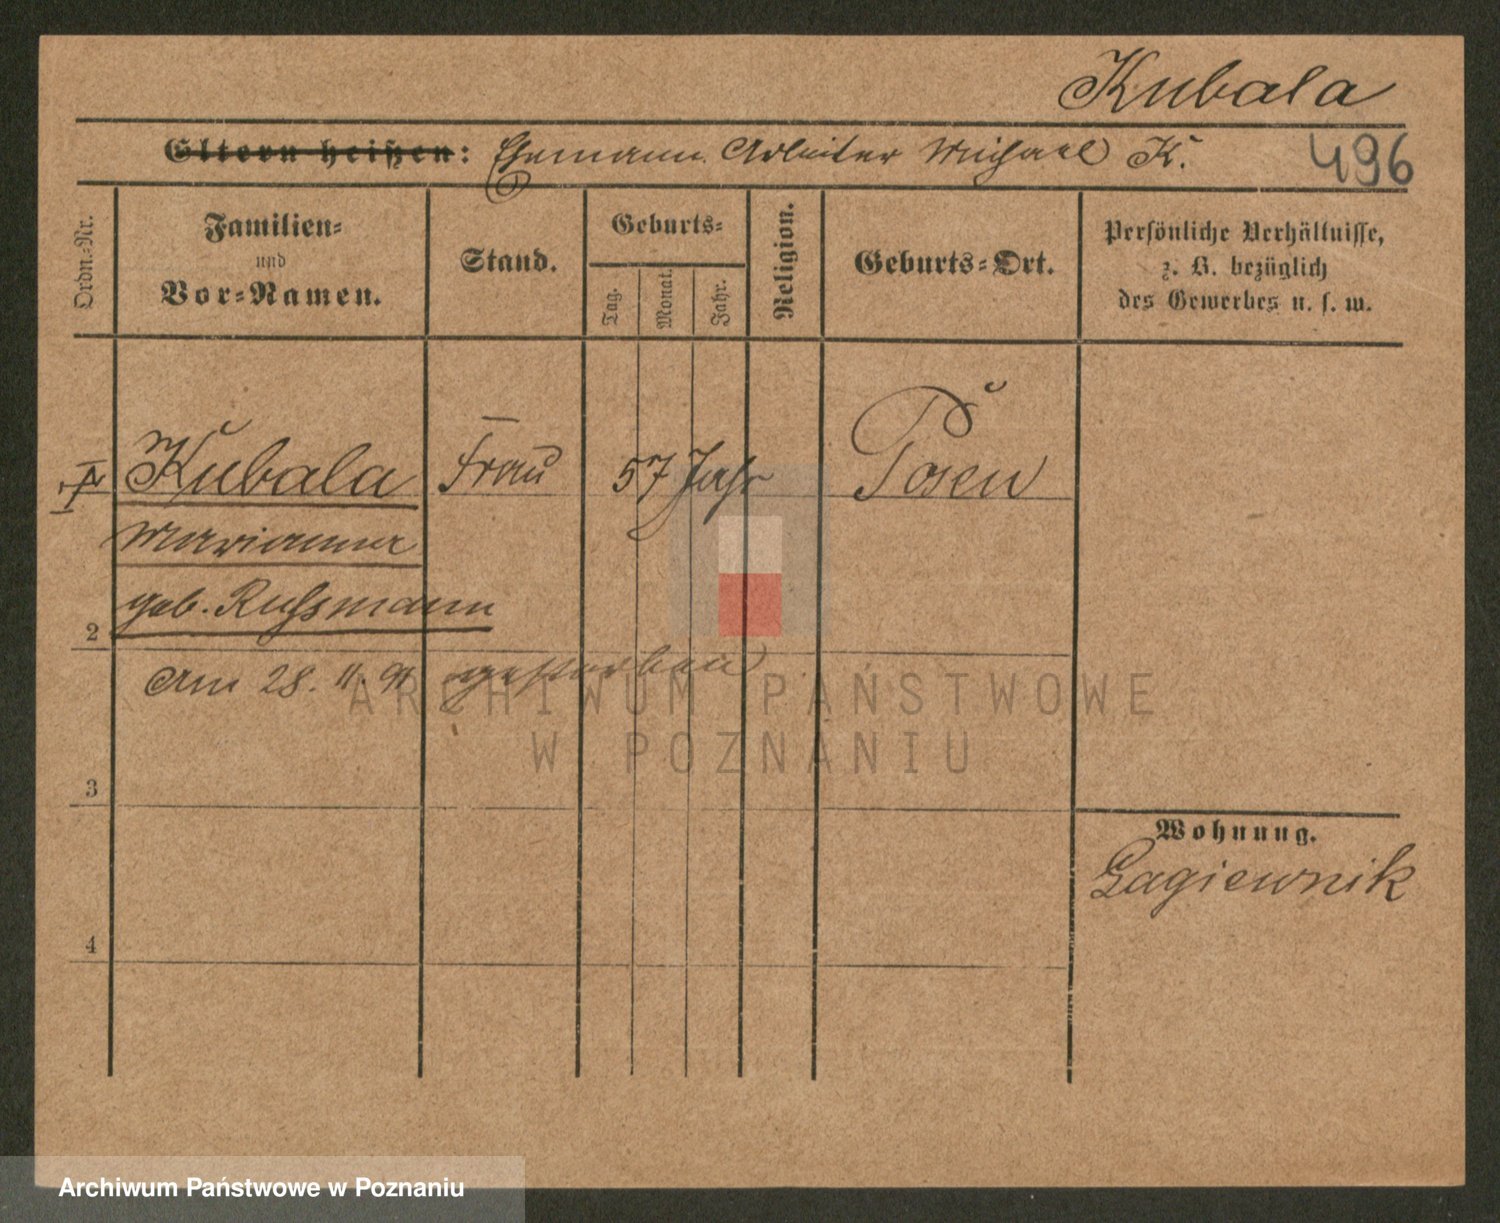 Kubala
Eltern heißen: Ehemann Arbeiter Michael K.
496
Ordn.-Nr.
Familien-
und
Vor-Namen.
Stand.
Geburts-
Tag.
Monat.
Jahr.
Religion.
Geburts-Ort.
Persönliche Verhältnisse,
z. B. bezüglich
des Gewerbes u. s. w.
Kubala Frau 57 Jahr Posen
Marianna
geb. Russmann
2
Am 28. 11. 91 gestorben
ARCHIWUM PAŃSTWOWE
W POZNANIU
3
Wohnung.
Lagiewnik
4
Archiwum Państwowe w Poznaniu